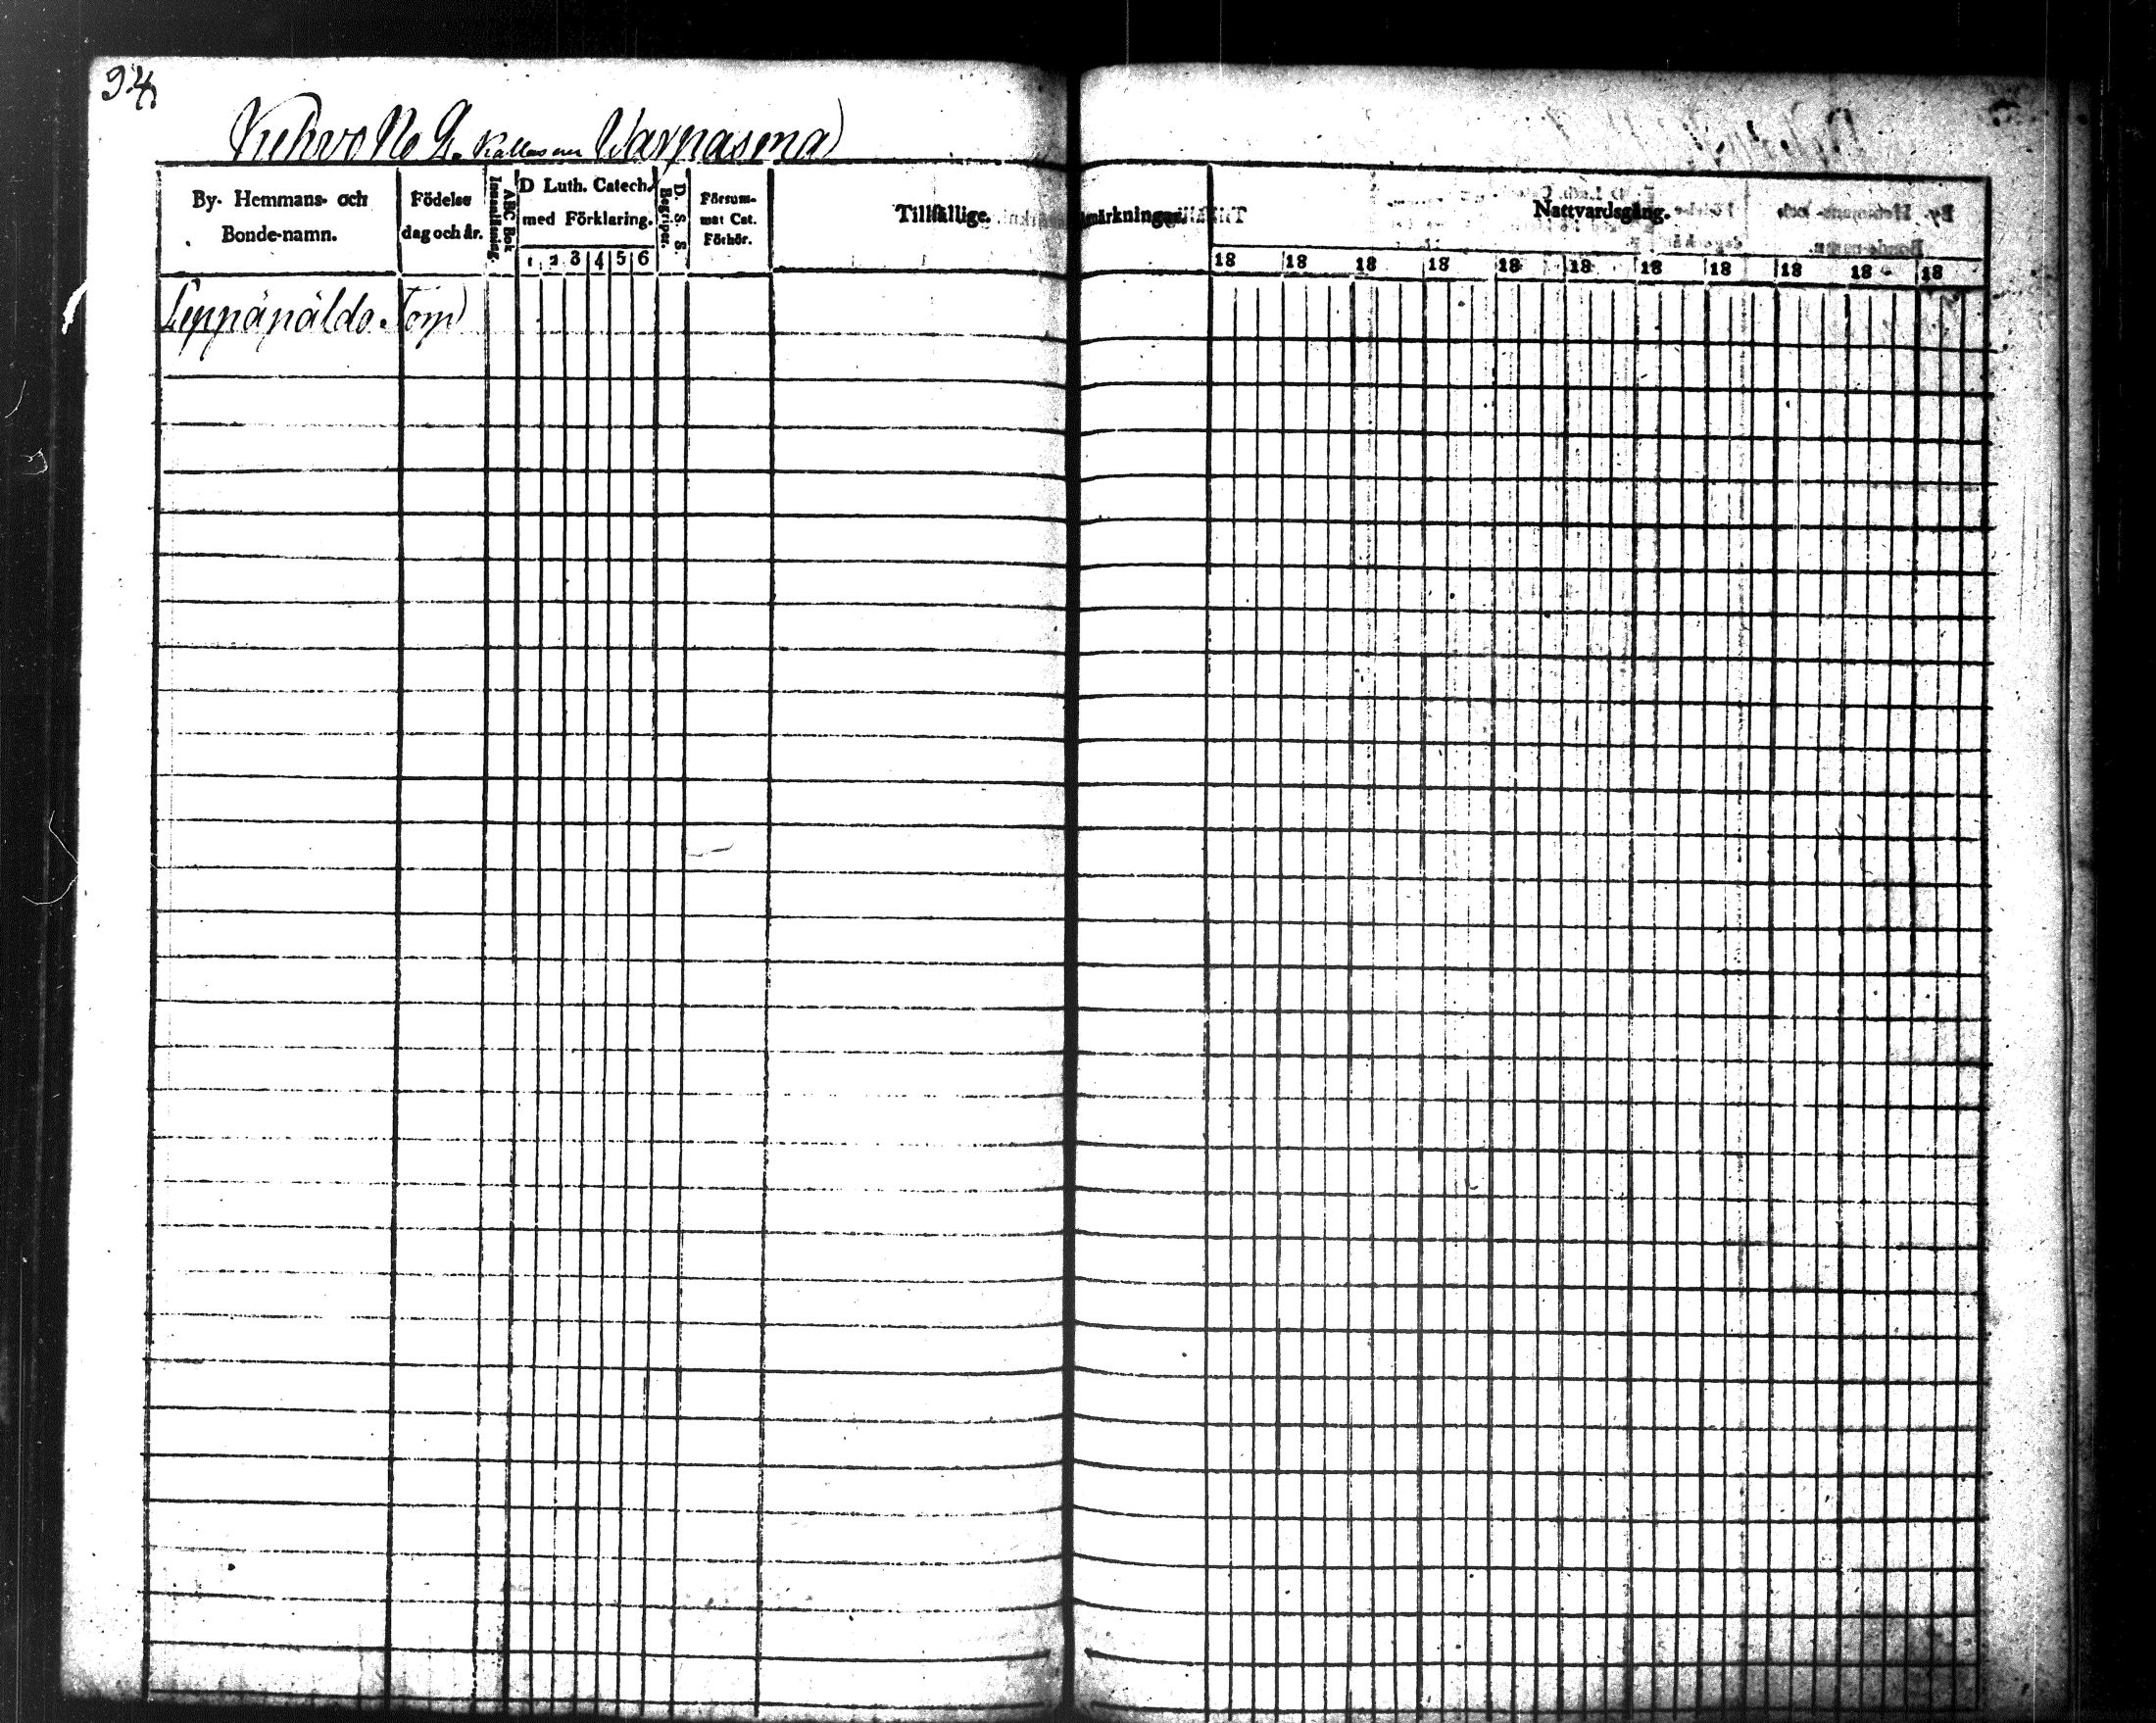 94
No 2. Kallas en Warpasena
By- Hemmans- och Bonde-namn.
Födelse dag och år.
ABC Bok Innanläsning.
D Luth. Catech. med Förklaring.
1 2 3 4 5 6
D. S. S. Begriper.
Försummat Cat. Förhör.
Tillfällige. märkningar.
Nattvardsgång.
18 18 18 18 18 18 18 18 18 18 18
Leppäpäldo. Torp